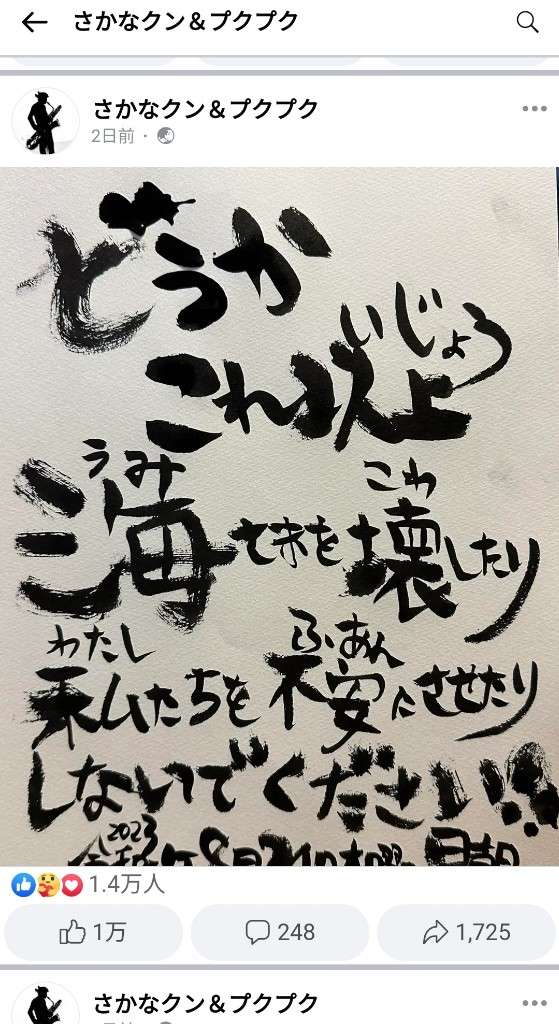 さかなクン＆プクプク
さかなクン＆プクプク
2日前
どうか
いじょう
これ以上
うみ
こわ
海てきを壊したり
わたし
ふあん
私たちを不安にさせたり
しないでください!!
2023
1.4万人
1万
248
1,725
さかなクン＆プクプク